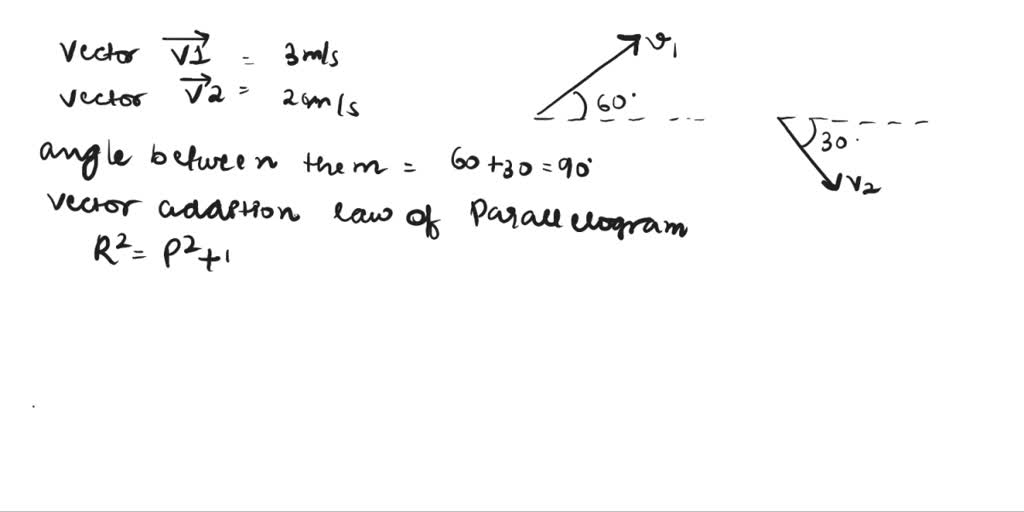 vector V1 = 3m/s
vector V2 = 2 m/s
v1
60°
30°
V2
angle between them = 60+30 = 90°
vector addition law of Parallelogram
R² = P² +